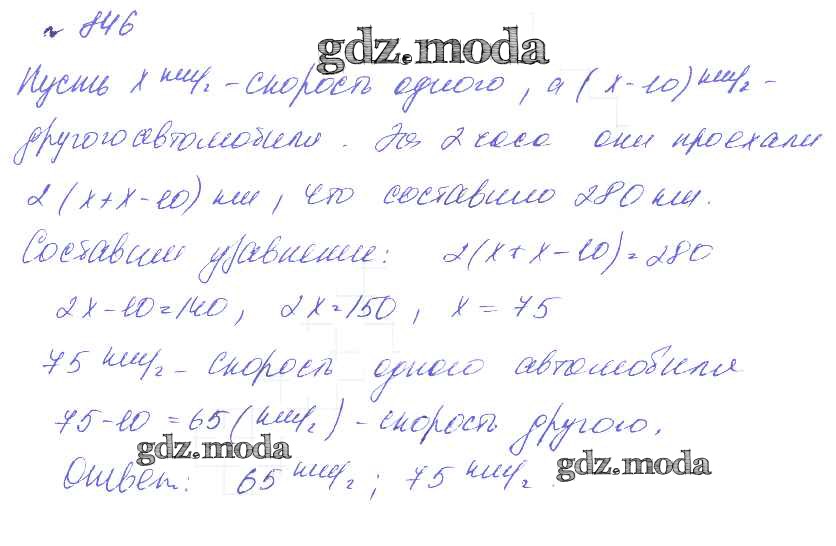 № 846
gdz.moda
Пусть x км/г – скорость одного, а (x-10) км/г –
другого автомобиля. За 2 часа они проехали
2(x+x-10) км, что составило 280 км.
Составим уравнение: 2(x+x-10)=280
2x-10=140, 2x=150, x=75
75 км/г – скорость одного автомобиля
75-10=65(км/г) – скорость другого.
gdz.moda
Ответ: 65 км/г; 75 км/г.
gdz.moda